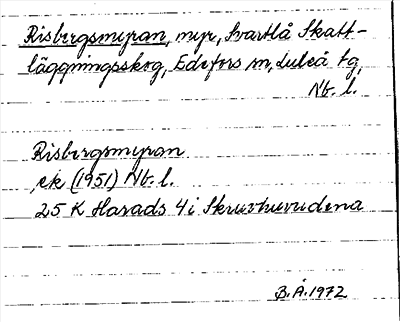 Risbergsmyran, myr, Svartlå Skatt-
läggningsskog, Edefors sn, Luleå tg,
Nb. l.
Risbergsmyran
ek (1951) Nb. l.
25 K Harads 4i Skruvhuvudena
B.Å. 1972